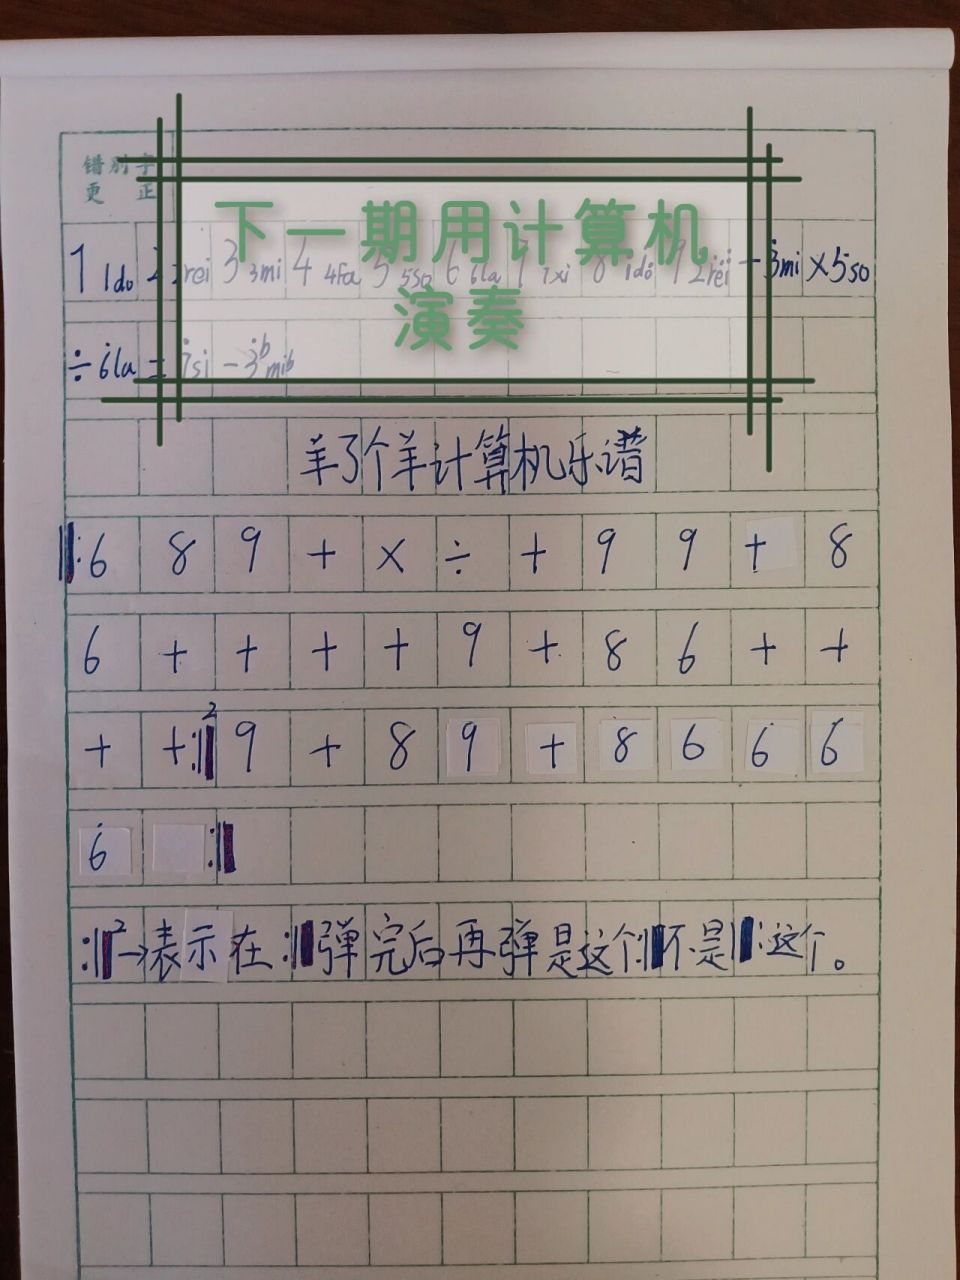 错别字
更 正
下一期用计算机
演奏
1 1do 2 2rei 3 3mi 4 4fa 5 5so 6 6la 7 7xi 8 i̇dō 9 2̇rei - 3̇mi ×5̇so
÷ 6̇la = 7̇si - 3̇ᵇmib
羊了个羊计算机乐谱
‖: 6 8 9 + × ÷ + 9 9 + 8
6 + + + + 9 + 8 6 + +
+ + :‖² 9 + 8 9 + 8 6 6 6
6 :‖
:‖²→表示在:‖弹完后再弹是这个:‖不是‖:这个。